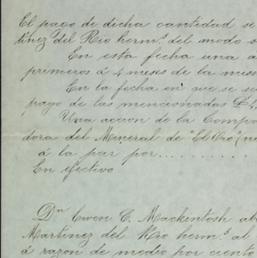 El pago de dicha cantidad se
tinez del Rio hermˢ. del modo s
En esta fecha una a
primeros á 4 meses de la mism
En la fecha enˢ que se s
pago de las mencionadas $4,
Una accion de la Compa
dora del Mineral de "El Oro", ne
á la par por..........
En efectivo
Dⁿ Ewen C. Mackintosh ab
Martinez del Rio hermˢ al
á razon de medio por ciento